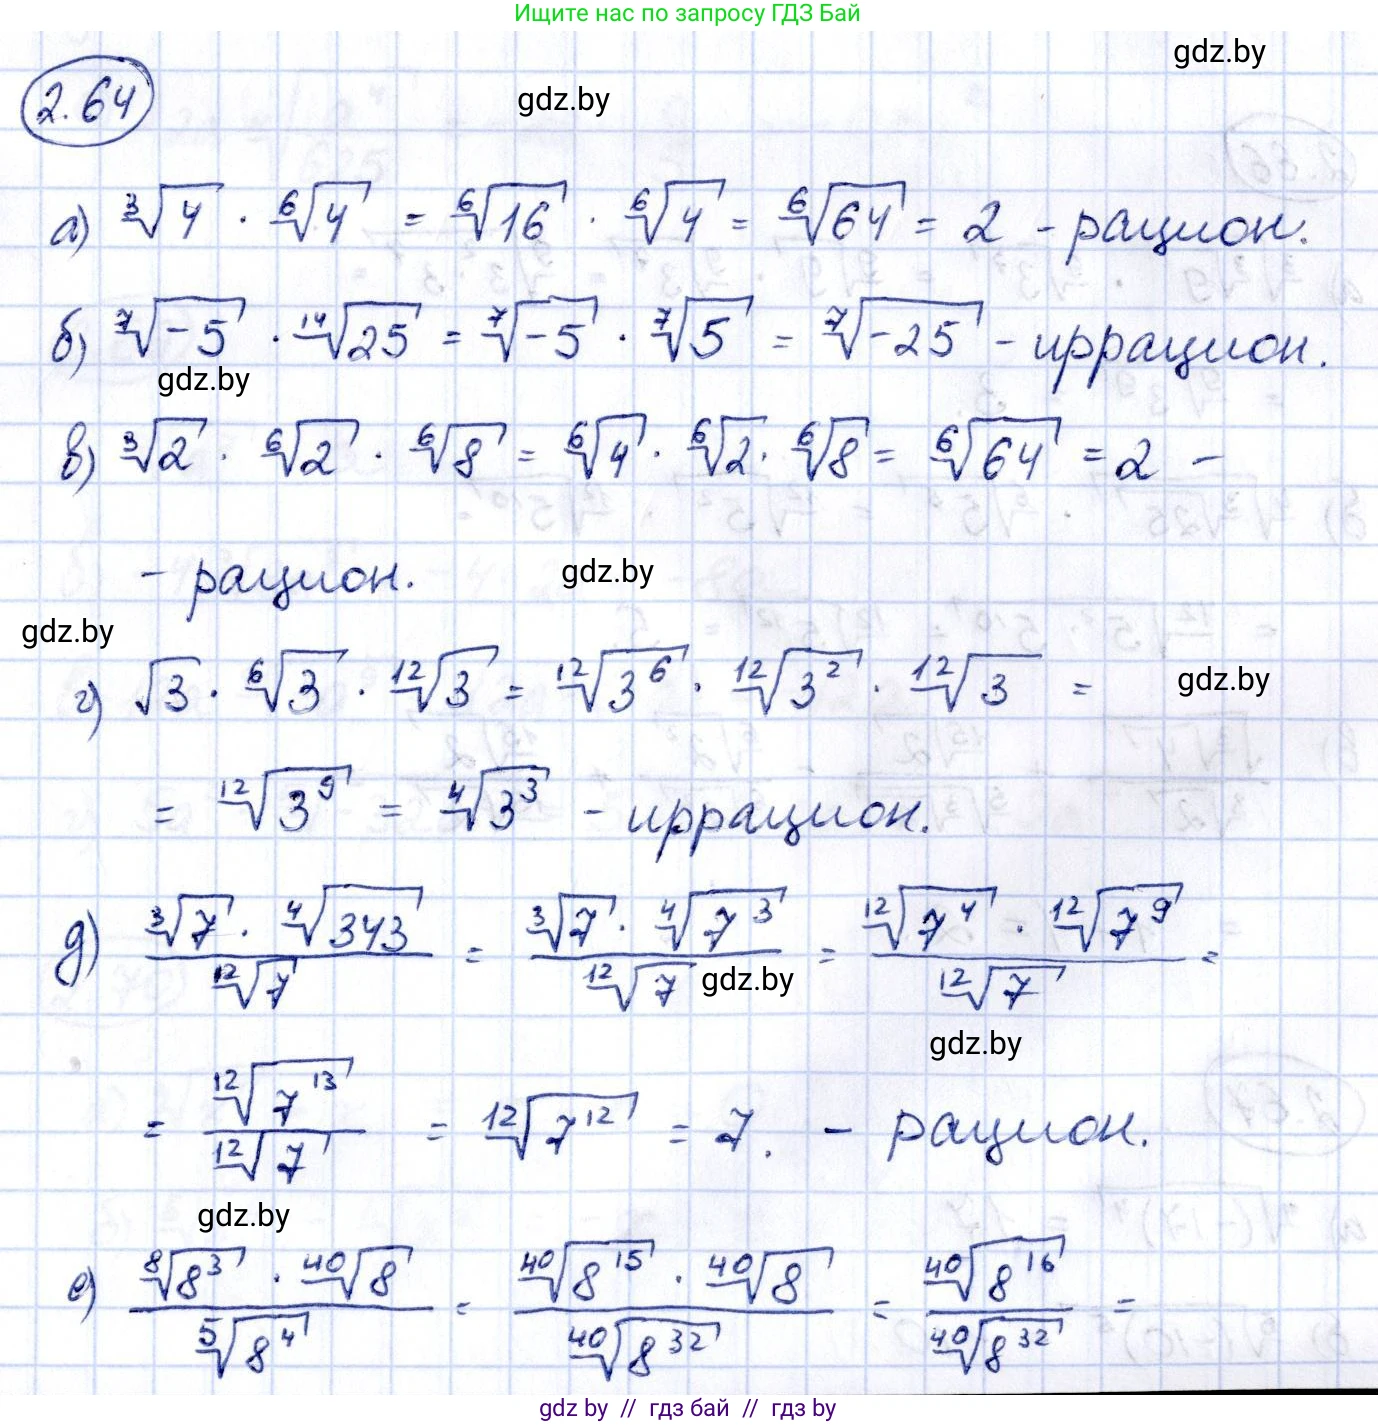 Ищите нас по запросу ГДЗ Бай
gdz.by
2.64
gdz.by
а) ∛4 · ⁶√4 = ⁶√16 · ⁶√4 = ⁶√64 = 2 - рацион.
б) ⁷√-5 · ¹⁴√25 = ⁷√-5 · ⁷√5 = ⁷√-25 - иррацион.
gdz.by
в) ∛2 · ⁶√2 · ⁶√8 = ⁶√4 · ⁶√2 · ⁶√8 = ⁶√64 = 2 -
- рацион.
gdz.by
gdz.by
г) √3 · ⁶√3 · ¹²√3 = ¹²√3⁶ · ¹²√3² · ¹²√3 =
gdz.by
= ¹²√3⁹ = ⁴√3³ - иррацион.
д) (∛7 · ⁴√343)/(¹²√7) = (∛7 · ⁴√7³)/(¹²√7) = (¹²√7⁴ · ¹²√7⁹)/(¹²√7) =
gdz.by
gdz.by
= (¹²√7¹³)/(¹²√7) = ¹²√7¹² = 7. - рацион.
gdz.by
е) (⁸√8³ · ⁴⁰√8)/(⁵√8⁴) = (⁴⁰√8¹⁵ · ⁴⁰√8)/(⁴⁰√8³²) = (⁴⁰√8¹⁶)/(⁴⁰√8³²) =
gdz by // гдз бай // гдз by